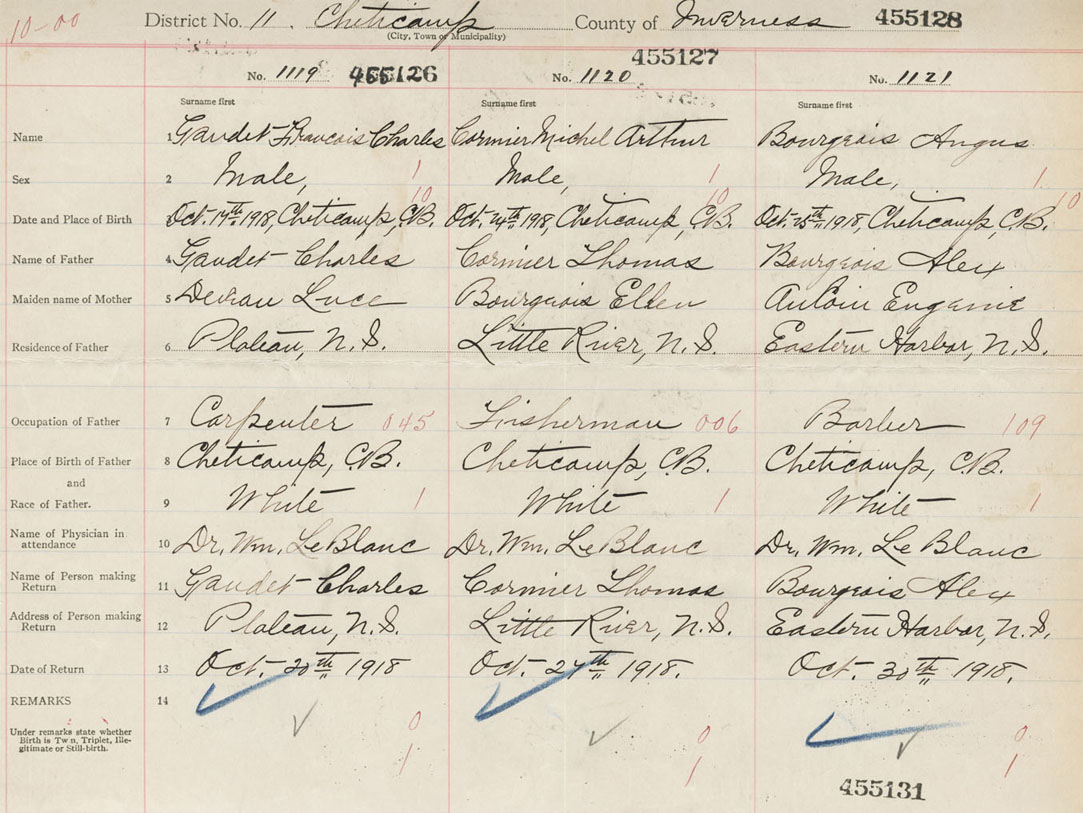 10-00 District No. 11. Cheticamp County of Inverness 455128
(City, Town or Municipality)
No. 1119 455126 No. 1120 455127 No. 1121
Surname first Surname first Surname first
Name 1 Gaudet Francois Charles Cormier Michel Arthur Bourgeois Angus
Sex 2 Male, 1 Male, 1 Male, 1
10 10 10
Date and Place of Birth 3 Oct. 17th 1918, Cheticamp, C.B. Oct. 24th 1918, Cheticamp, C.B. Oct. 25th 1918, Cheticamp, C.B.
Name of Father 4 Gaudet Charles Cormier Thomas Bourgeois Alex
Maiden name of Mother 5 Deveau Luce Bourgeois Ellen AuCoin Eugenie
Residence of Father 6 Plateau, N.S. Little River, N.S. Eastern Harbor, N.S.
Occupation of Father 7 Carpenter 045 Fisherman 006 Barber 109
Place of Birth of Father 8 Cheticamp, C.B. Cheticamp, C.B. Cheticamp, C.B.
and
Race of Father. 9 White 1 White 1 White 1
Name of Physician in
attendance 10 Dr. Wm. LeBlanc Dr. Wm. LeBlanc Dr. Wm. LeBlanc
Name of Person making
Return 11 Gaudet Charles Cormier Thomas Bourgeois Alex
Address of Person making
Return 12 Plateau, N.S. Little River, N.S. Eastern Harbor, N.S.
Date of Return 13 Oct. 20th 1918 Oct. 27th 1918. Oct. 30th 1918.
REMARKS 14
Under remarks state whether
Birth is Twin, Triplet, Ille-
gitimate or Still-birth.
0 0 0
1 1 1
455131